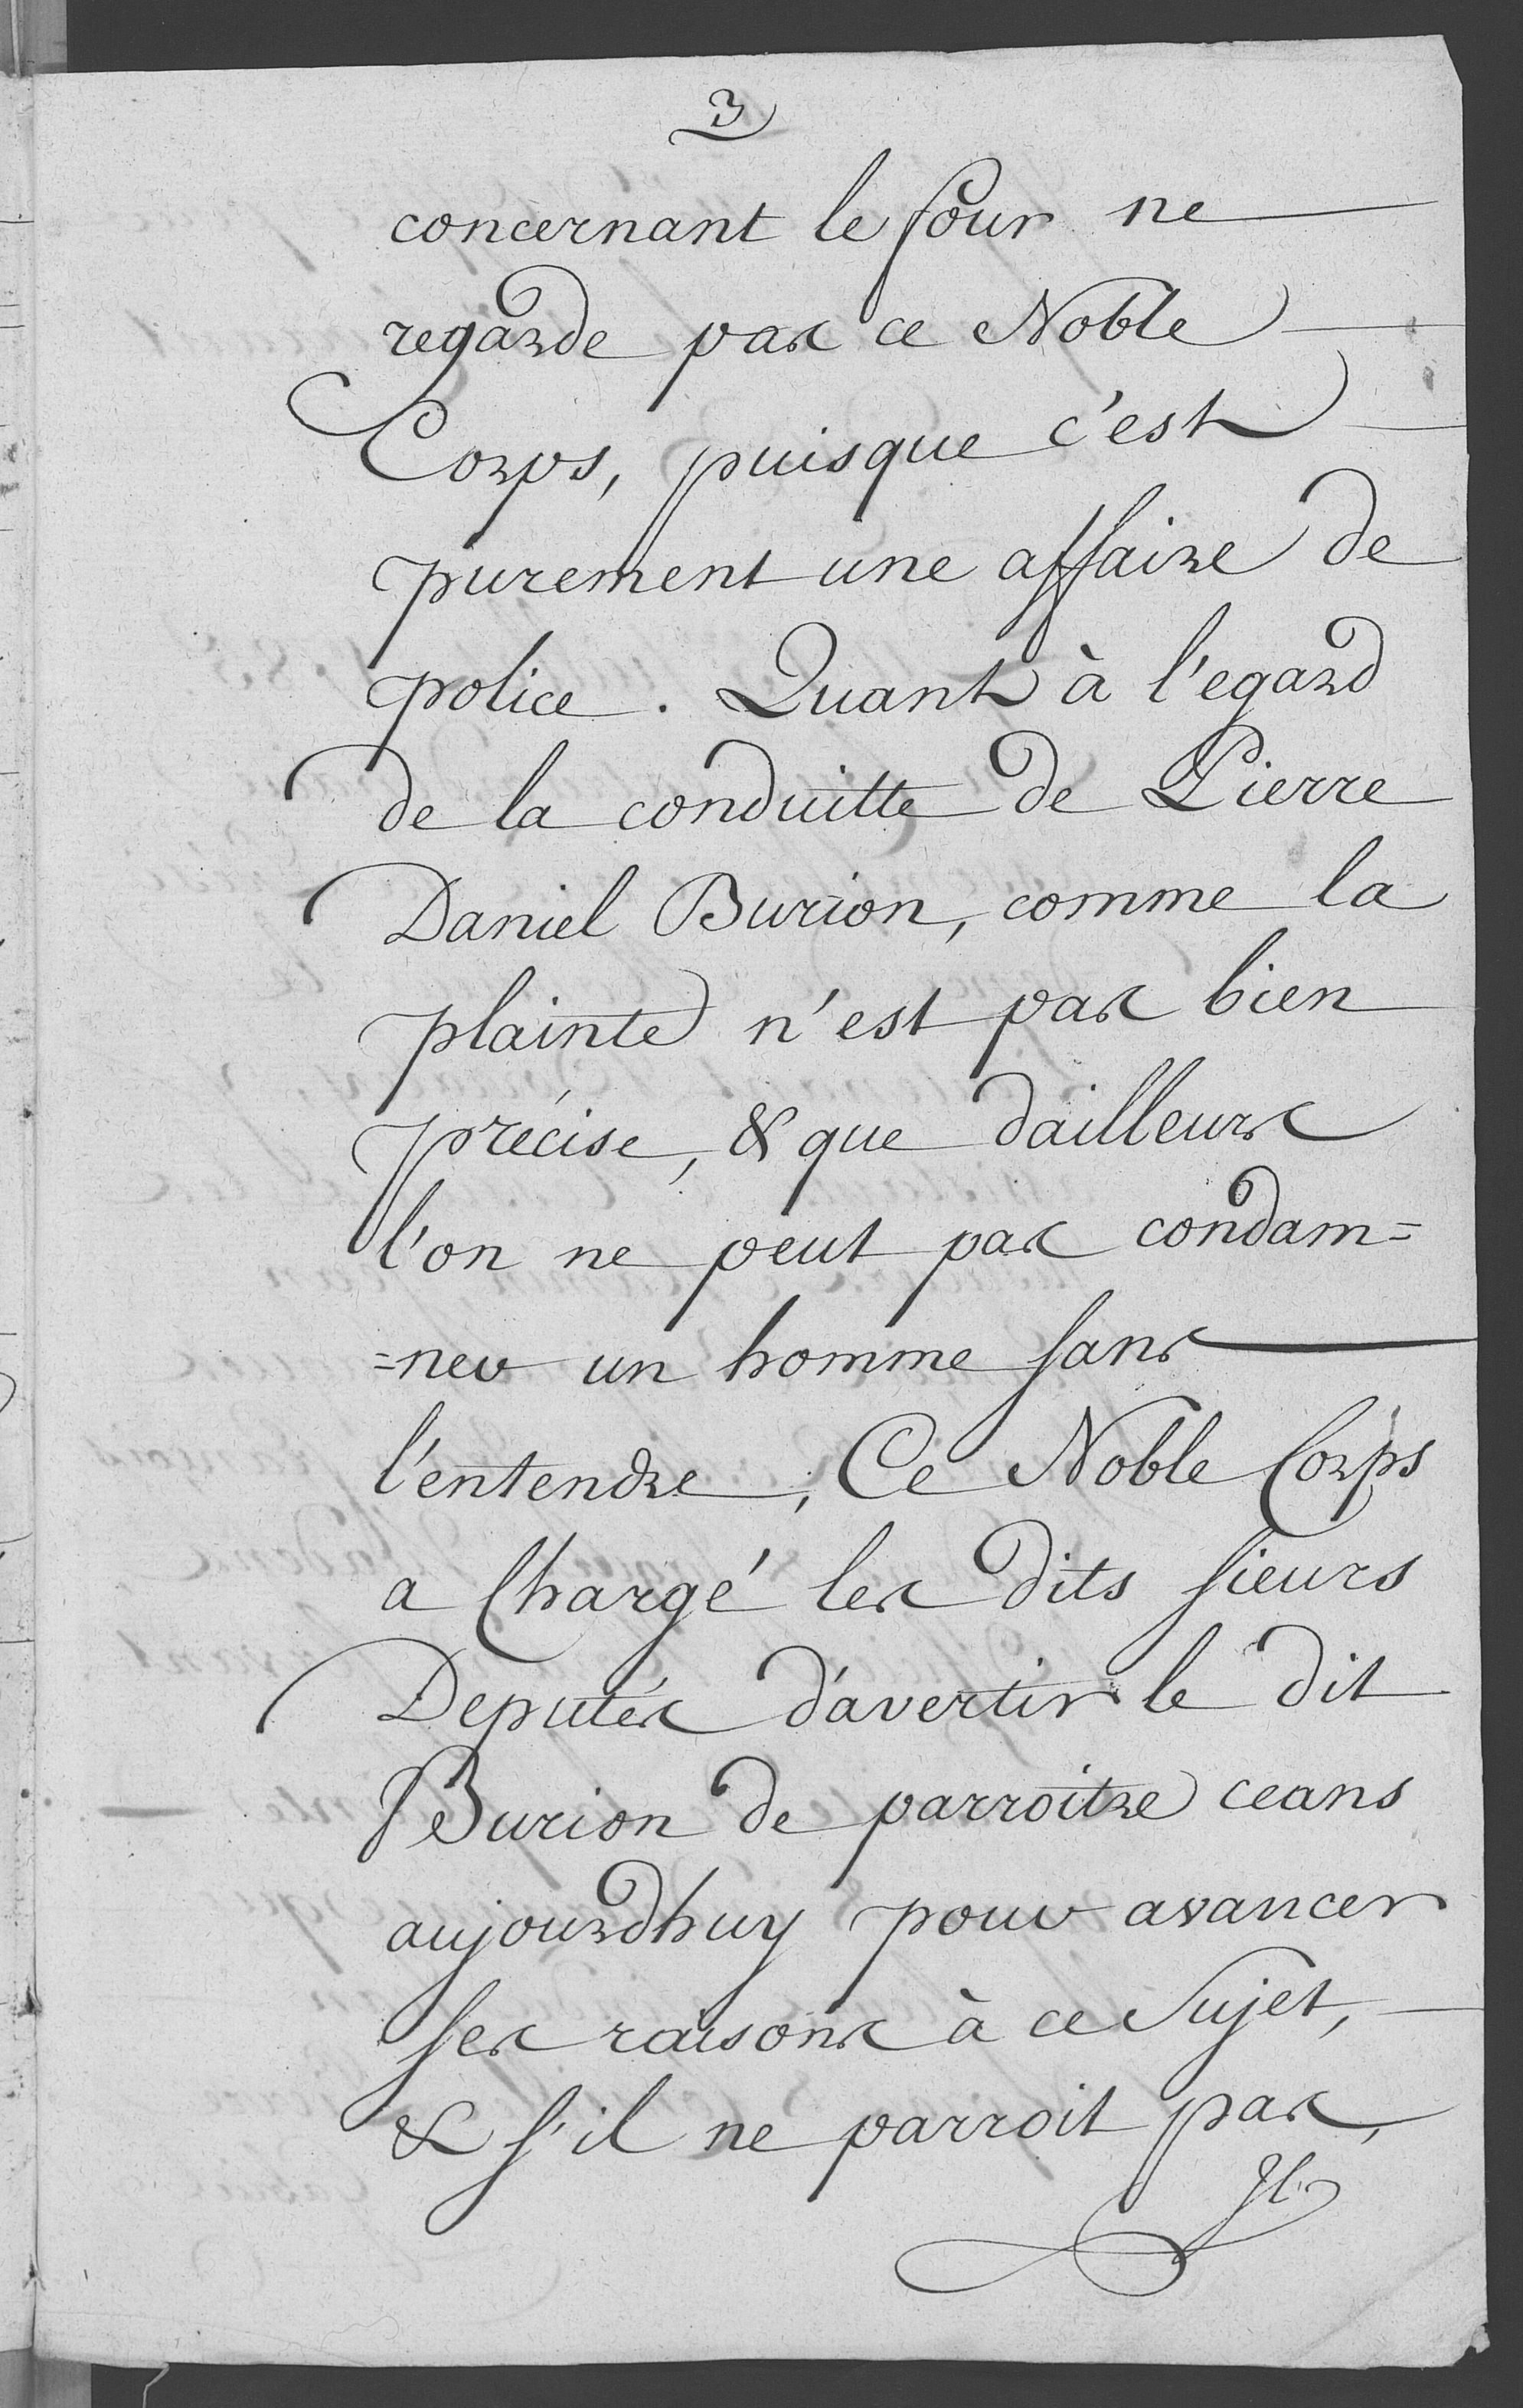 3
concernant le four ne
regarde pas ce Noble
Corps, puisque c'est
purement une affaire de
police. Quant à l'egard
de la conduitte de Pierre
Daniel Burion, comme la
plainte n'est pas bien
précise, & que dailleurs
l'on ne peut pas condam=
=ner un homme sans
l'entendre, Ce Noble Corps
a Chargé les dits sieurs
Deputés d'avertir le dit
Burion de parroitre ceans
aujourdhuy pour avancer
ses raisons à ce Sujet,
& s'il ne parroit pas,
Il